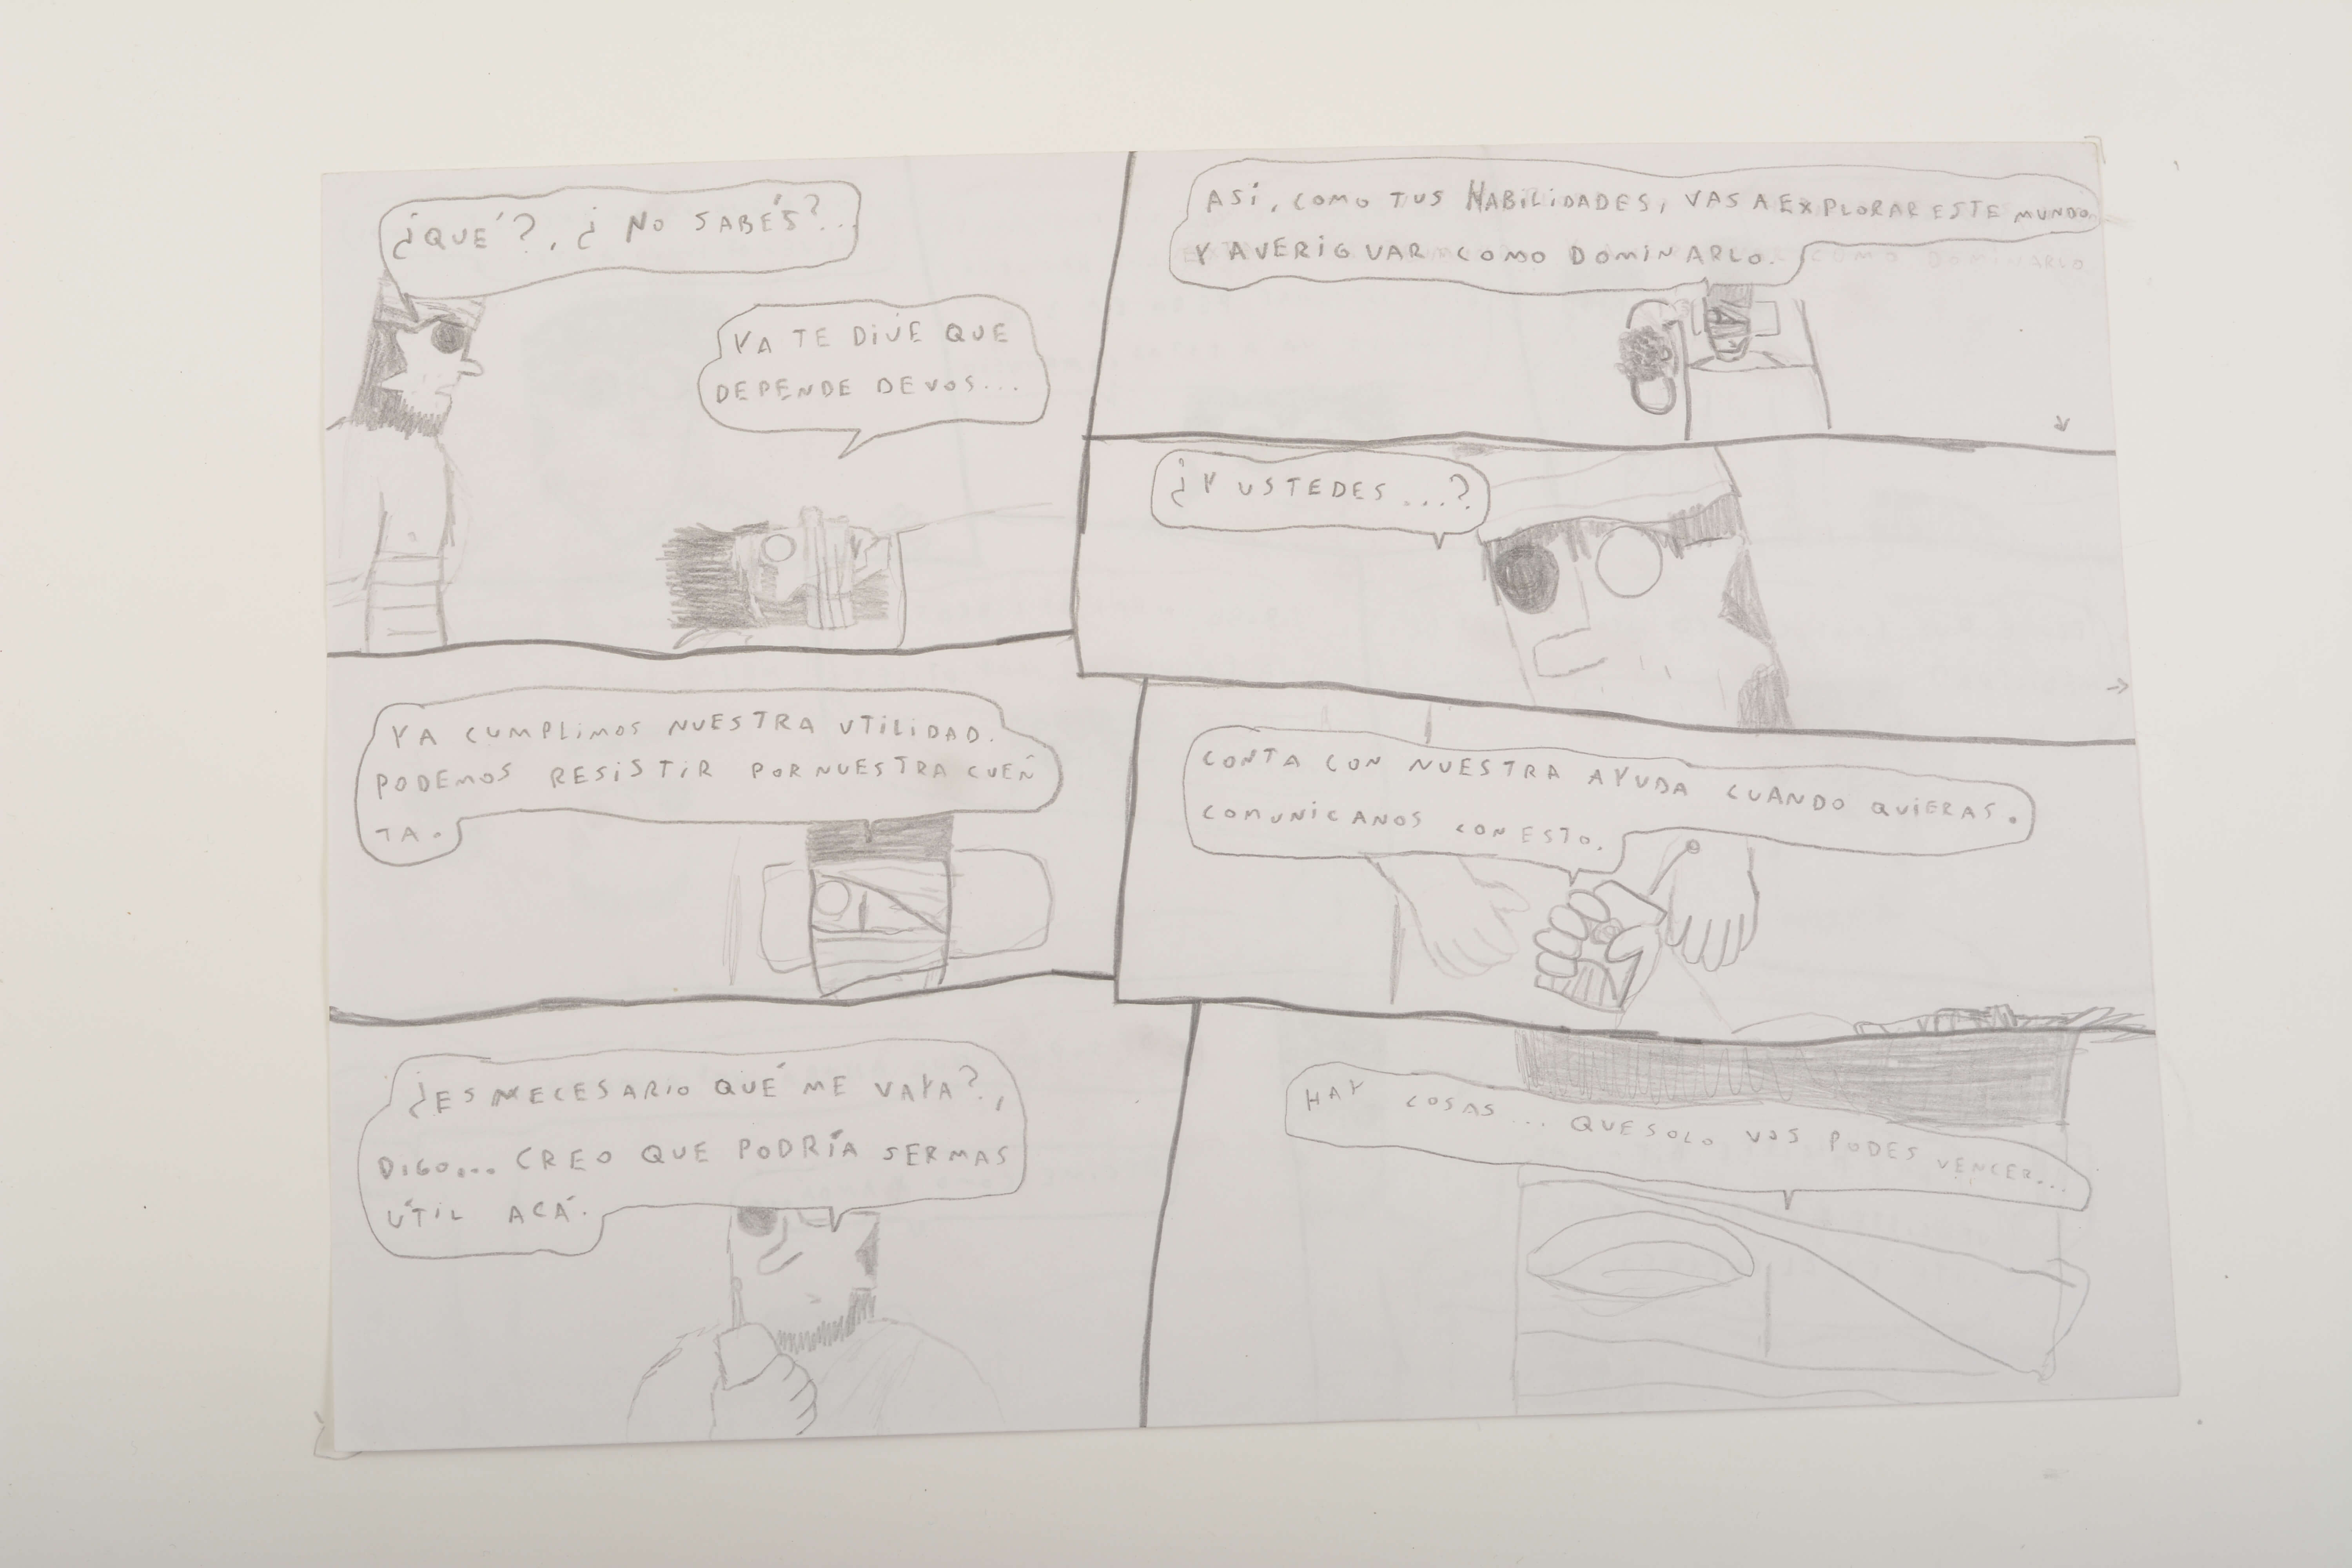 ¿QUÉ?, ¿NO SABÉS?...
YA TE DIJE QUE
DEPENDE DE VOS...
ASÍ, COMO TUS HABILIDADES, VAS A EXPLORAR ESTE MUNDO
Y AVERIGUAR COMO DOMINARLO.
¿Y USTEDES...?
YA CUMPLIMOS NUESTRA UTILIDAD.
PODEMOS RESISTIR POR NUESTRA CUEN
TA.
CONTA CON NUESTRA AYUDA CUANDO QUIERAS.
COMUNICANOS CON ESTO.
¿ES NECESARIO QUÉ ME VAYA?,
DIGO... CREO QUE PODRÍA SER MAS
ÚTIL ACÁ.
HAY COSAS... QUE SOLO VOS PODES VENCER...